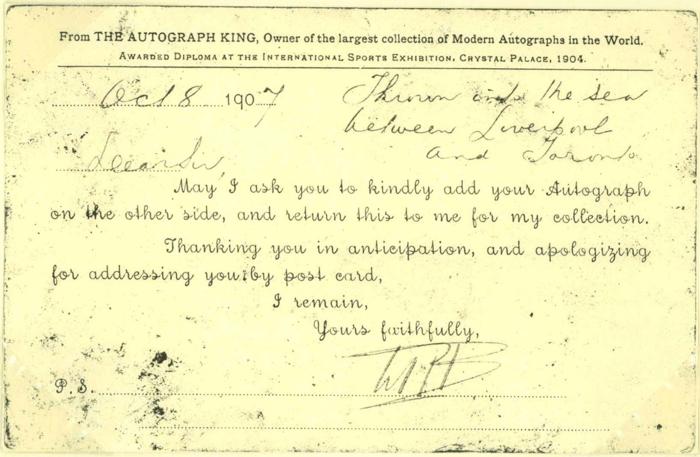 From THE AUTOGRAPH KING, Owner of the largest collection of Modern Autographs in the World.
AWARDED DIPLOMA AT THE INTERNATIONAL SPORTS EXHIBITION, CRYSTAL PALACE, 1904.
Oct 8 1907
Thrown into the sea
between Liverpool
and Toronto
Dear Sir
May I ask you to kindly add your Autograph
on the other side, and return this to me for my collection.
Thanking you in anticipation, and apologizing
for addressing you by post card,
I remain,
Yours faithfully,
P.S.